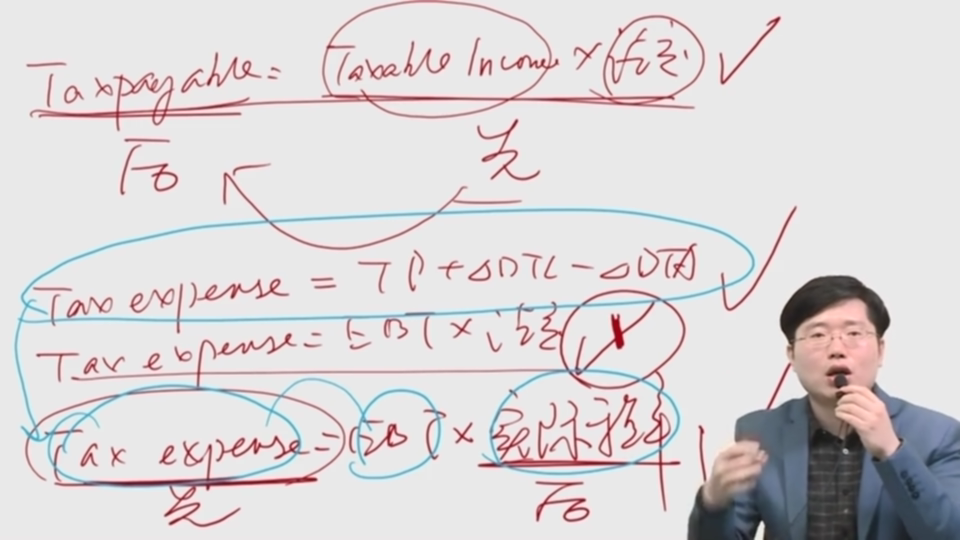 Tax payable = Taxable Income × 法定
后 先
Tax expense = TP + ΔDTL - ΔDTA
Tax expense = EBT × 法定
Tax expense = EBT × 实际税率
先 后